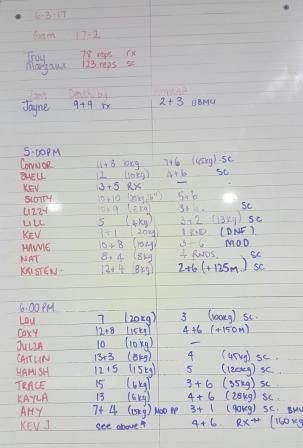 6-3-17
6am 17-2
Troy 78 reps rx
Margaux 123 reps sc
Jayne 9+9 rx 2+3 BBMU
5:00PM
CONNOR 11+8 10kg 7+6 (45kg) SC
SHELL 12 (10kg) 4+6 SC
KEV 13+5 RX —
SCOTTY 10+10 5+6
LIZZY 10+9 SC
LILL 5 (4kg) 3+2 (13kg) SC
KEV 9+1 (20kg) 1 RND. (DNF)
MAVVIE 10+8 (10kg) 3-6 MOD
NAT 8+4 (8kg) 4 RNDS. SC
KRISTEN 12+4 (8kg) 2+6 (+125m) SC
6:00PM
LOU 7 (20kg) 3 (100kg) SC.
COXY 12+8 (15kg) 4+6 (+150m)
JULIA 10 (10kg) —
CAITLIN 13+3 (8kg) 4 (45kg) SC.
HAMISH 12+5 (15kg) 5 (120kg) SC.
TRACE 15 (6kg) 3+6 (35kg) SC.
KAYLA 13 (6kg) 4+6 (28kg) SC.
AMY 7+4 (15kg) MOD PP 3+1 (90kg) SC. BMU
KEV J. see above 4+6. RX (160kg